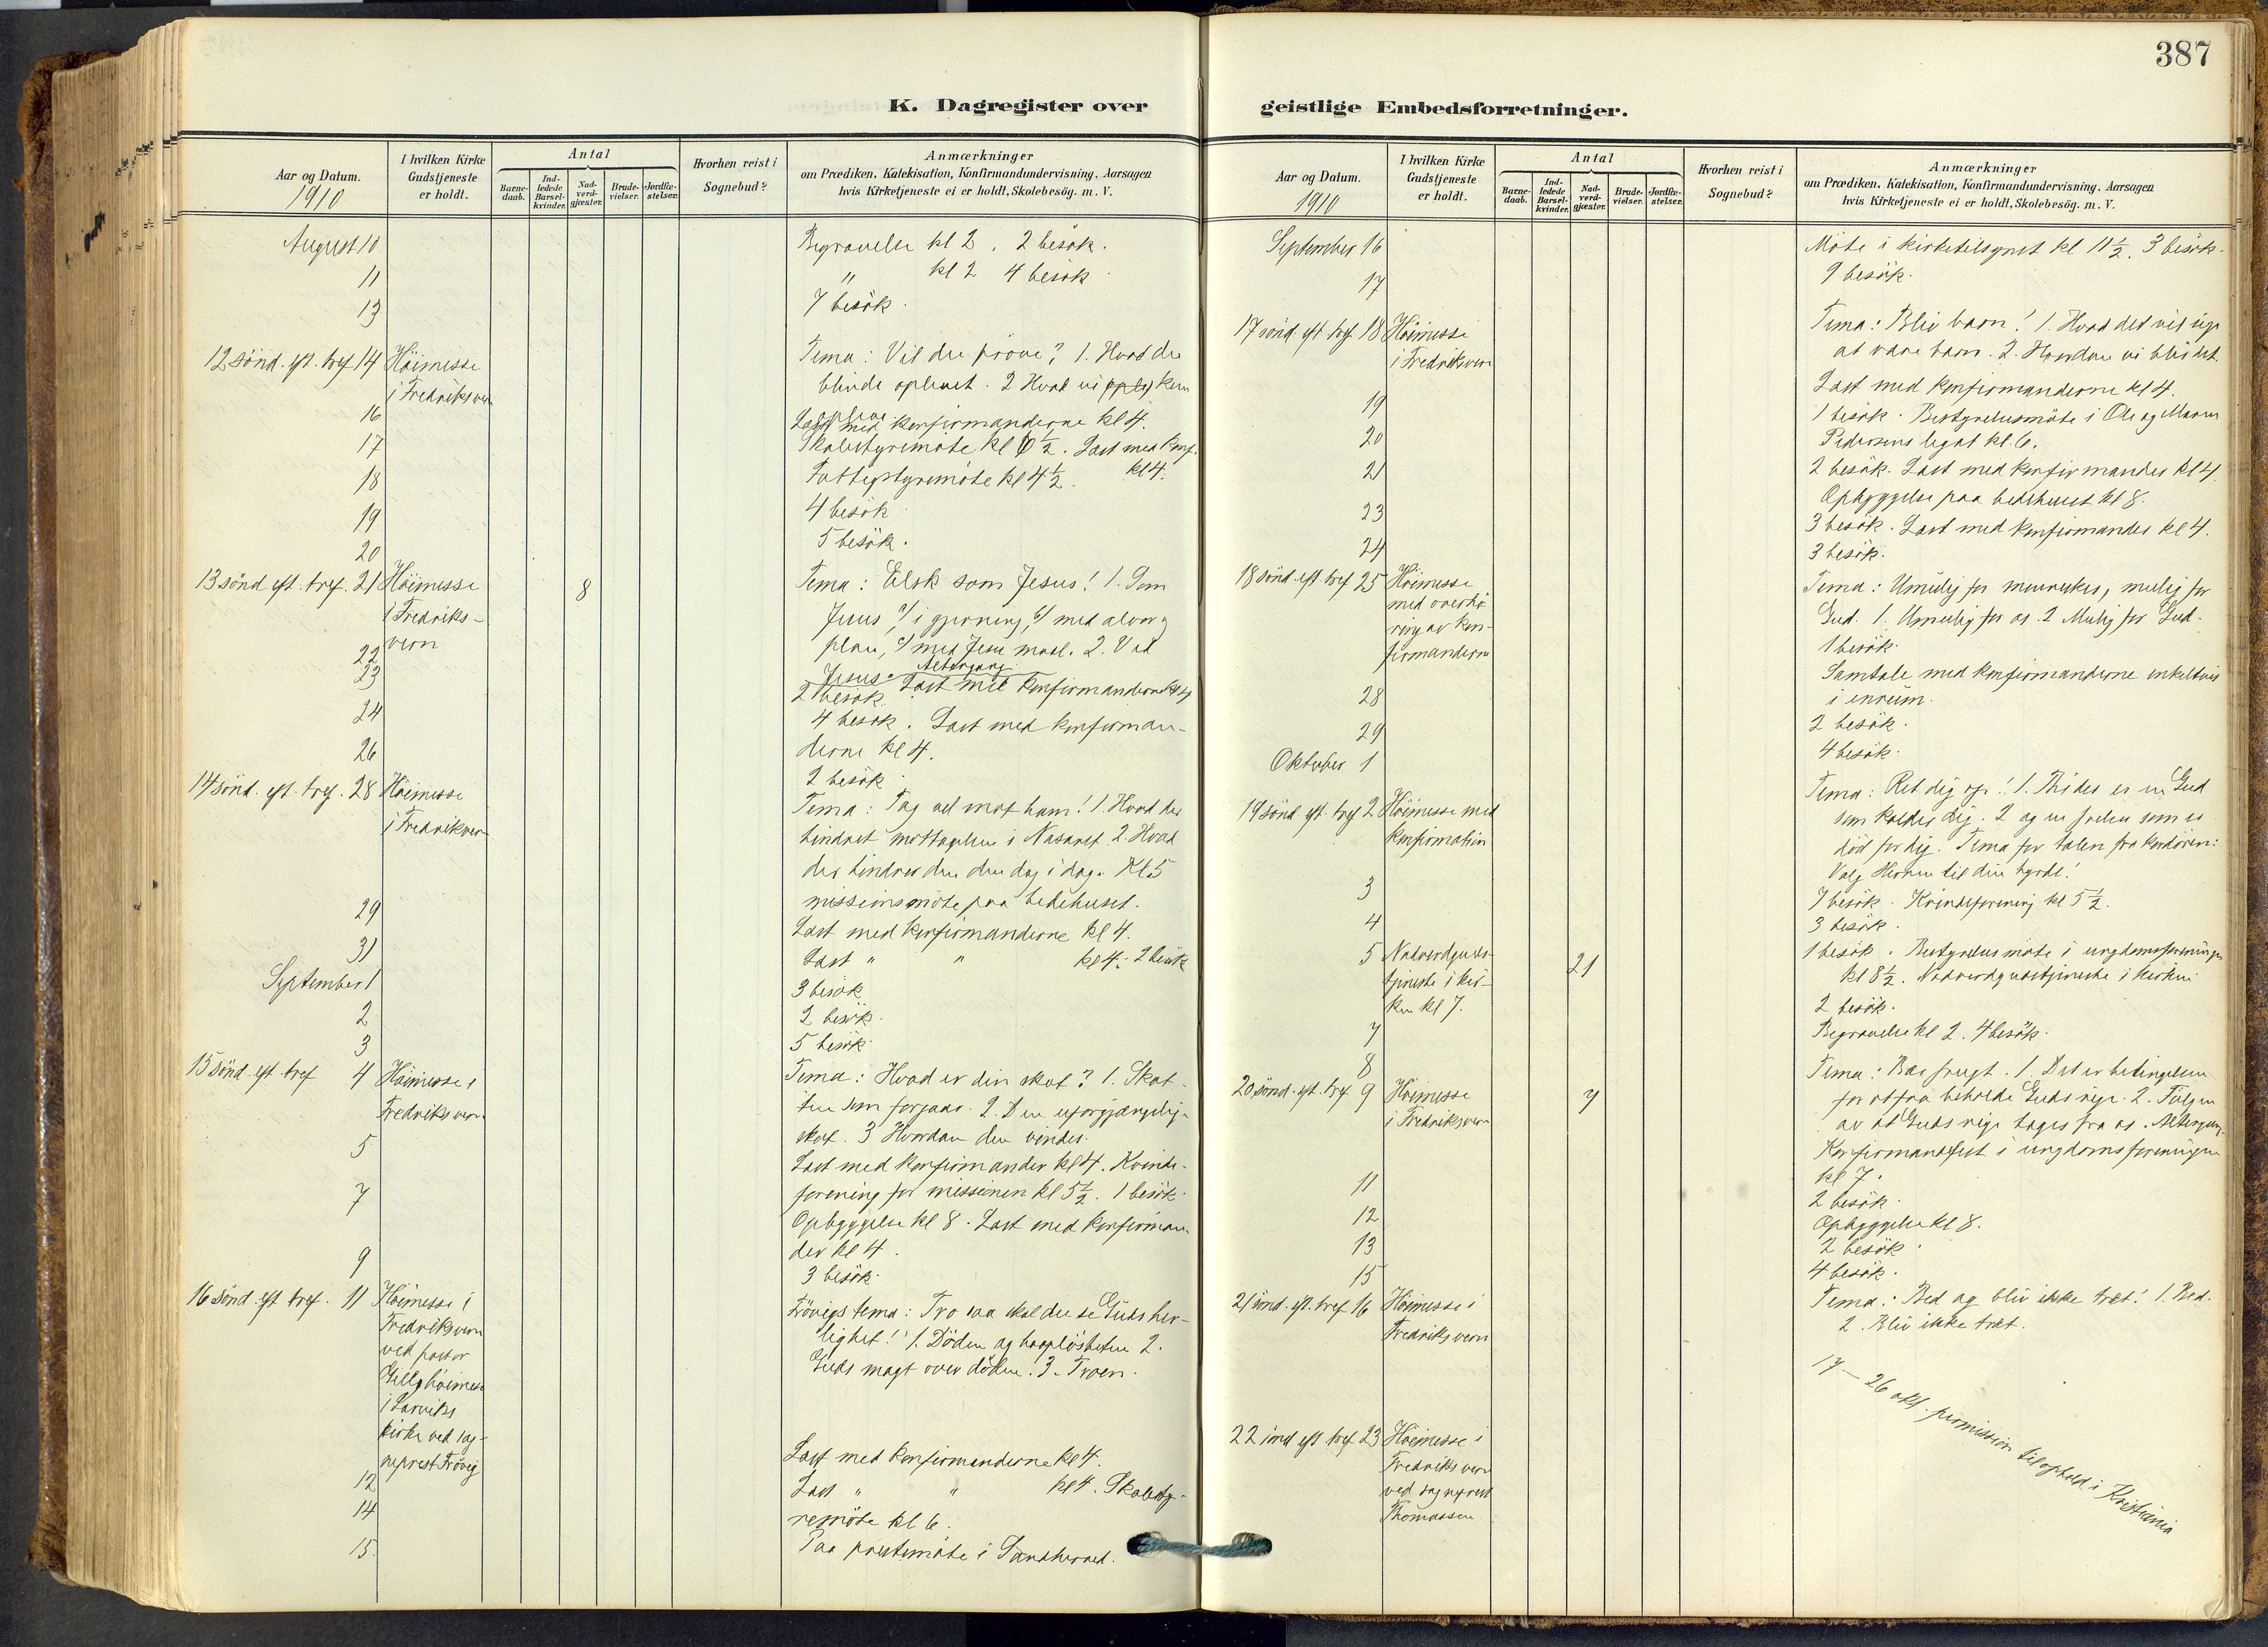 387
K. Dagregister over
Aar og Datum.
1910
I hvilken Kirke
Gudstjeneste
er holdt.
Antal
Barne-
daab.
Ind-
ledede
Barsel-
kvinder.
Nad-
verd-
gjæster.
Brude-
vielser.
Jordfæ-
stelser.
Hvorhen reist i
Sognebud?
Anmærkninger
om Prædiken, Katekisation, Konfirmandundervisning, Aarsagen
hvis Kirketjeneste ei er holdt, Skolebesög. m. V.
August 10 Begravelse kl 2. 2 besøk.
11 " kl 2 4 besøk
13 7 besøk.
12 sønd. eft. tref 14 Høimesse
i Fredriksvern
Tema: Vil du prøve? 1. Hvad den
blinde oplevet. 2 Hvad vi kan
opleve.
16 Læst med konfirmanderne kl 4.
17 Skolestyremøte kl 6 1/2. Læst med konf.
kl 4.
18 Fattigstyremøte kl 4 1/2.
19 4 besøk
20 5 besøk.
13 sønd eft. tref. 21 Høimesse
i Fredriks-
vern
8
Tema: Elsk som Jesus! 1. Som
Jesus a/ i gjerning, b/ med alvor og
plan, c/ med Jesu maal. 2. Ved
Jesus. Altergang.
22
23 2 besøk. Læst med konfirmanderne kl 4
24 4 besøk. Læst med konfirman-
derne kl 4.
26 2 besøk.
14 sønd. eft. tref. 28 Høimesse
i Fredriksvern
Tema: Tag vel mot ham! 1. Hvad der
hindret mottagelsen i Nasaret. 2. Hvad
der hindrer den den dag i dag. Kl 5
missionsmøte paa bedehuset.
29 Læst med konfirmanderne kl 4.
31 Læst " " kl 4. 2 besøk
September 1 3 besøk
2 2 besøk.
3 5 besøk.
15 sønd. eft. tref 4 Høimesse i
Fredriksvern.
Tema: Hvad er din skat? 1. Skat-
ten som forgaar. 2. Den uforgjængelige
skat. 3 Hvordan den vindes.
5 Læst med konfirmander kl 4. Kvinde-
forening for missionen kl 5 1/2. 1 besøk.
7 Opbyggelse kl 8. Læst med konfirman-
der kl 4.
9 3 besøk.
16 sønd. eft tref. 11 Høimesse i
Fredriksvern
ved pastor
i Larviks
kirke ved sog-
neprest Trövig
Trövigs tema: Tro saa skal du se Guds her-
lighet! 1. Døden og haapløsheten 2.
Guds magt over døden. 3. Troen.
12 Læst med konfirmanderne kl 4.
14 Læst " " kl 4. Skolesty-
remøte kl 6.
15. Paa prestemøte i Sandherred.
geistlige Embedsforretninger.
Aar og Datum.
1910
I hvilken Kirke
Gudstjeneste
er holdt.
Antal
Barne-
daab.
Ind-
ledede
Barsel-
kvinder.
Nad-
verd-
gjæster.
Brude-
vielser.
Jordfæ-
stelser.
Hvorhen reist i
Sognebud?
Anmærkninger
om Prædiken, Katekisation, Konfirmandundervisning, Aarsagen
hvis Kirketjeneste ei er holdt, Skolebesög. m. V.
September 16 Møte i kirketilsynet kl 11 1/2. 3 besøk.
17 9 besøk.
17 sønd. eft tref 18 Høimesse
i Fredriksvern
Tema: Bliv barn! 1. Hvad det vil sige
at være barn. 2. Hvordan vi blir det.
19 Læst med konfirmanderne kl 4.
20 1 besøk. Bestyrelsesmøte i Ole og Maren
Pedersens legat kl. 6.
21 2 besøk. Læst med konfirmander kl 4.
Opbyggelse paa bedehuset kl 8.
23 3 besøk. Læst med konfirmander kl 4.
24 3 besøk.
18 sønd. eft tref 25 Høimesse
med overhø-
ring av kon-
firmanderne
Tema: Umulig for mennesker, mulig for
Gud. 1. Umulig for os. 2 Mulig for Gud.
1 besøk.
28 Samtale med konfirmanderne enkeltvis
i enrum.
29 2 besøk.
Oktober 1 4 besøk.
19 sønd. eft. tref 2 Høimesse med
konfirmation
Tema: Ret dig op! 1. Thi der er en Gud
som kalder dig. 2 og en frelser som er
død for dig. Tema for talen fra kordøren:
Vælg Herren til din hyrde!
3 7 besøk. Kvindeforening kl 5 1/2.
4 3 besøk.
5 Nadverdguds-
tjeneste i kir-
ken kl 7.
21
1 besøk. Bestyrelsesmøte i ungdomsforeningen
kl 8 1/2. Nadverdgudstjeneste i kirken
7 2 besøk.
8 Begravelse kl 2. 4 besøk.
20 sønd. eft. tref 9 Høimesse
i Fredriksvern
7
Tema: Bær frugt. 1. Det er betingelsen
for at faa beholde Guds rige. 2. Følgen
av at Guds rige tages fra os. Altergang.
Konfirmandfest i ungdomsforeningen
kl 7.
11 2 besøk.
12 Opbyggelse kl 8.
13 2 besøk.
15 4 besøk.
21 sønd. eft. tref 16 Høimesse i
Fredriksvern
Tema: Bed og bliv ikke træt! 1. Bed.
2. Bliv ikke træt.
17 - 26 okt. permission til ophold i Kristiania
22 sønd eft tref 23 Høimesse i
Fredriksvern
ved sogneprest
Thomassen